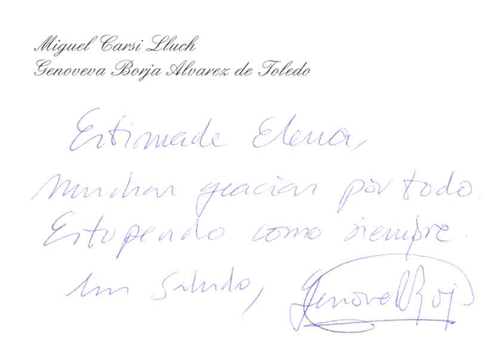 Miguel Carsi Lluch
Genoveva Borja Alvarez de Toledo
Estimada Elena,
Muchas gracias por todo.
Estupendo como siempre.
Un saludo, Genoveva Borja